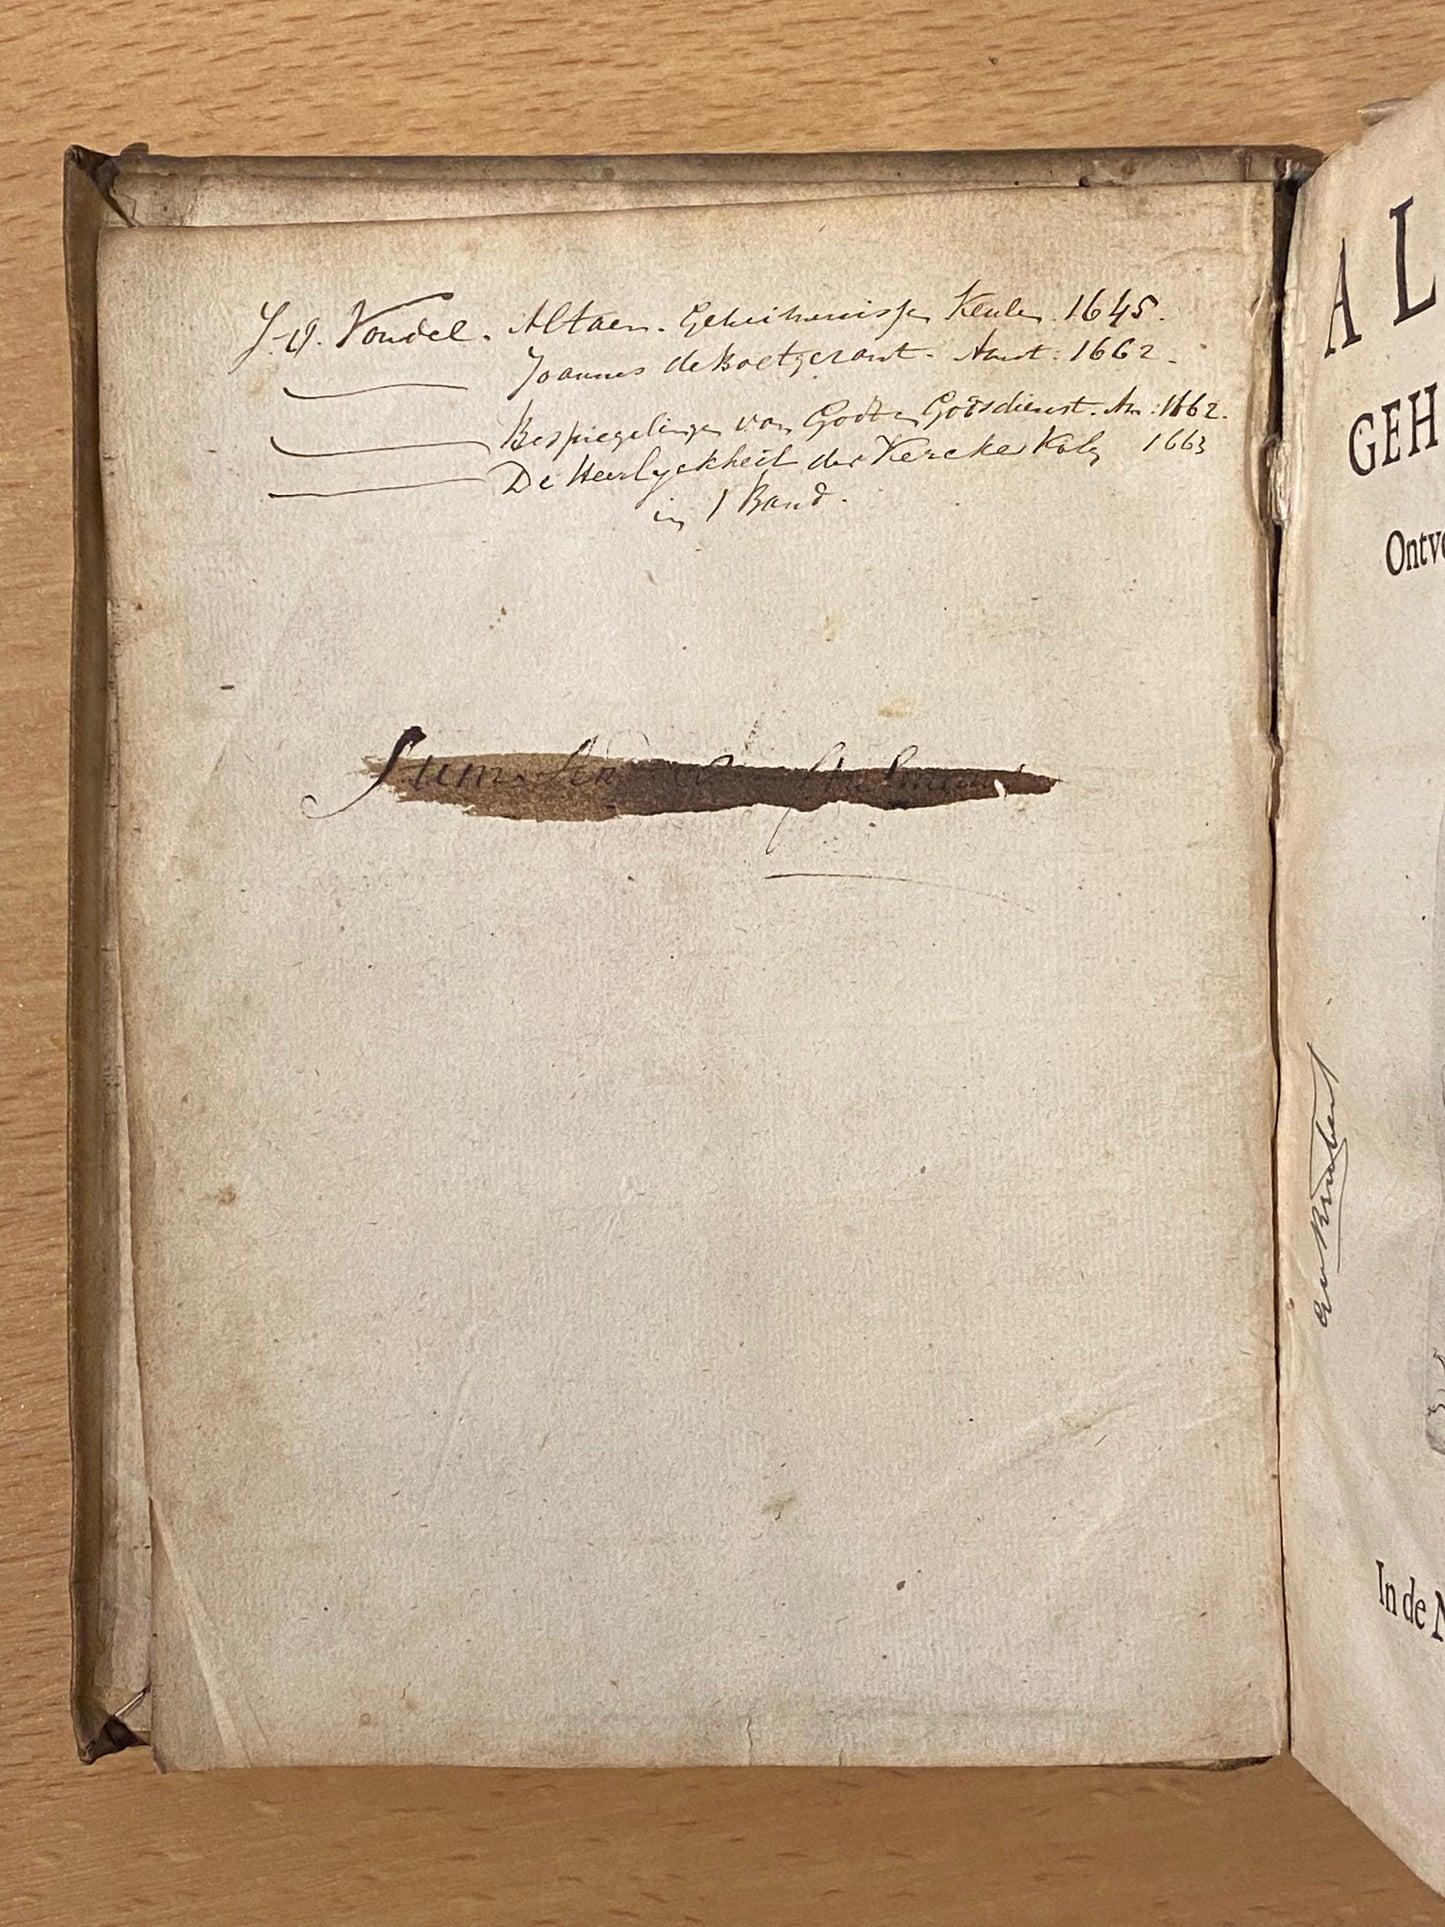 J. v. Vondel. Altaer. Geheimenissen Keulen. 1645.
Joannes de Boetgezant. Amst: 1662.
Bespiegelingen van Godt en Gotsdienst. Am: 1662.
De Heerlyckheit der Kercke 1663
in 1 Band.
Sum
AL
GEH
Ontv
In de N